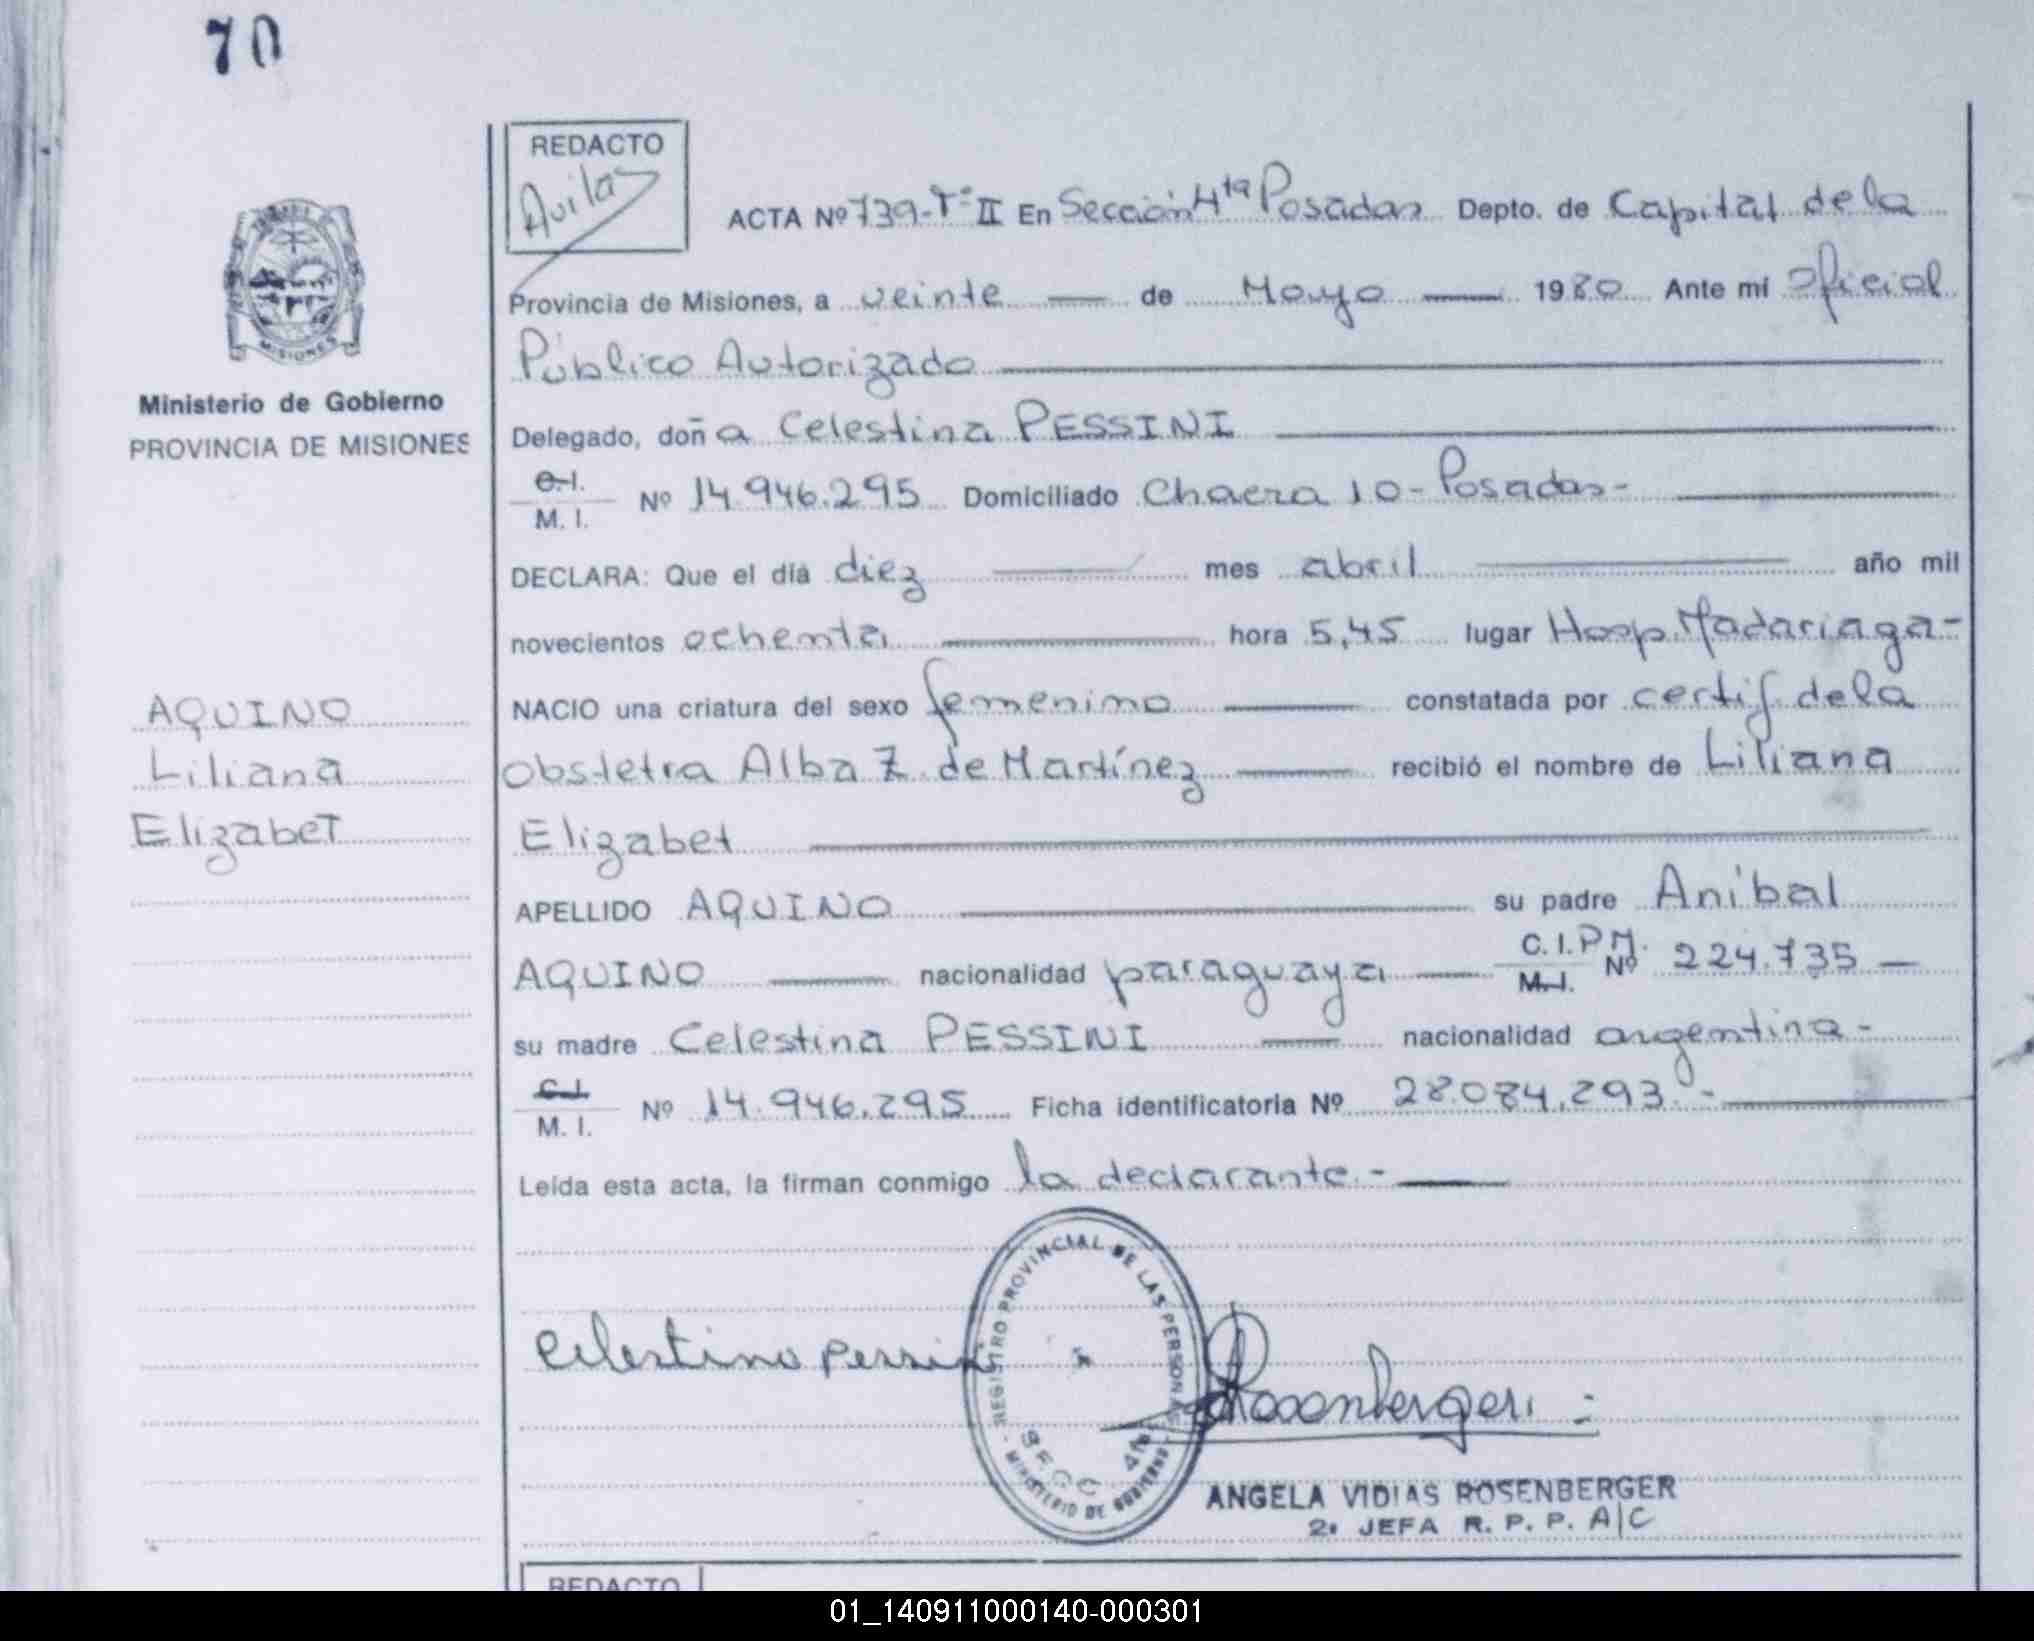 70
REDACTO
Avilas
ACTA Nº 739-Tº II En Sección 4ta Posadas Depto. de Capital de la
Provincia de Misiones, a veinte de Mayo 1980 Ante mí Oficial
Público Autorizado
Ministerio de Gobierno
PROVINCIA DE MISIONES
MISIONES
Delegado, doña Celestina PESSINI
C.I.
M. I. Nº 14.946.295 Domiciliado Chacra 10 - Posadas -
DECLARA: Que el día diez mes abril año mil
novecientos ochenta hora 5,45 lugar Hosp. Madariaga -
NACIO una criatura del sexo femenino constatada por certif. de la
obstetra Alba Z. de Martínez recibió el nombre de Liliana
Elizabet
AQUINO
Liliana
Elizabet
APELLIDO AQUINO su padre Aníbal
AQUINO nacionalidad paraguaya C. I. P. M. Nº 224.735 —
M. I.
su madre Celestina PESSINI nacionalidad argentina -
C.I.
M. I. Nº 14.946.295 Ficha identificatoria Nº 28.084.293.-
Leída esta acta, la firman conmigo la declarante.-
Celestina Pessini
REGISTRO PROVINCIAL DE LAS PERSONAS
SECC 4ta
- MINISTERIO DE GOBIERNO -
Rosenberger
ANGELA VIDIAS ROSENBERGER
2ª JEFA R. P. P. A/C
REDACTO
01_140911000140-000301